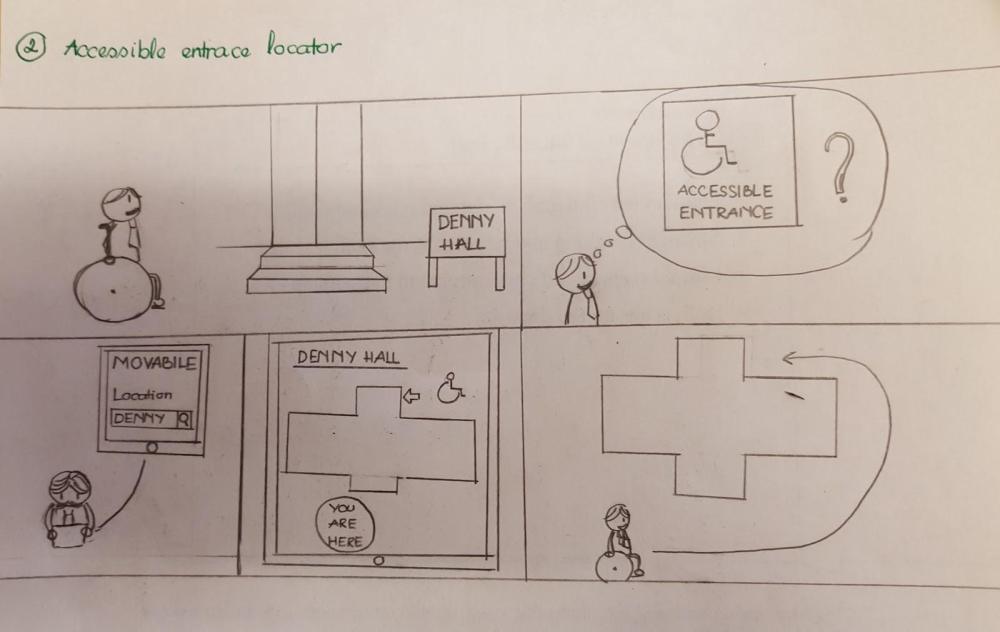 2 Accessible entrace locator
DENNY
HALL
ACCESSIBLE
ENTRANCE
?
MOVABILE
Location
DENNY
DENNY HALL
YOU
ARE
HERE
H